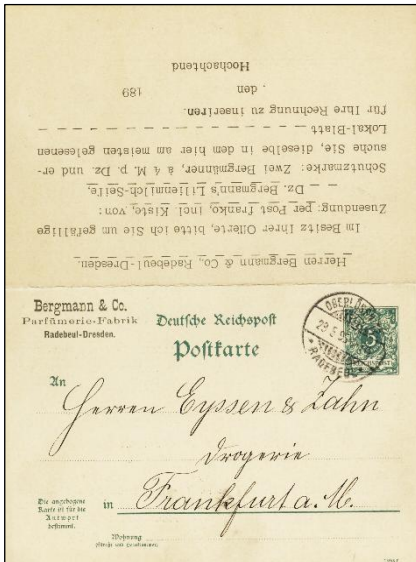 Herren Bergmann & Co., Radebeul-Dresden.
Im Besitz Ihrer Offerte, bitte ich Sie um gefällige
Zusendung: per Post franko, incl Kiste, von:
— — Dz. Bergmann's Lilienmilch-Seife,
Schutzmarke: Zwei Bergmänner, à 4 M. p. Dz. und er-
suche Sie, dieselbe in dem hier am meisten gelesenen
Lokal-Blatt — — — — — — — —
für Ihre Rechnung zu inseriren.
. den 189
Hochachtend
Bergmann & Co.
Parfümerie-Fabrik
Radebeul-Dresden.
Deutsche Reichspost
Postkarte
5
An
Herren Eyssen & Zahn
Drogerie
in Frankfurt a. M.
Die angebogene
Karte ist für die
Antwort
bestimmt.
Wohnung
(Straße und Hausnummer)